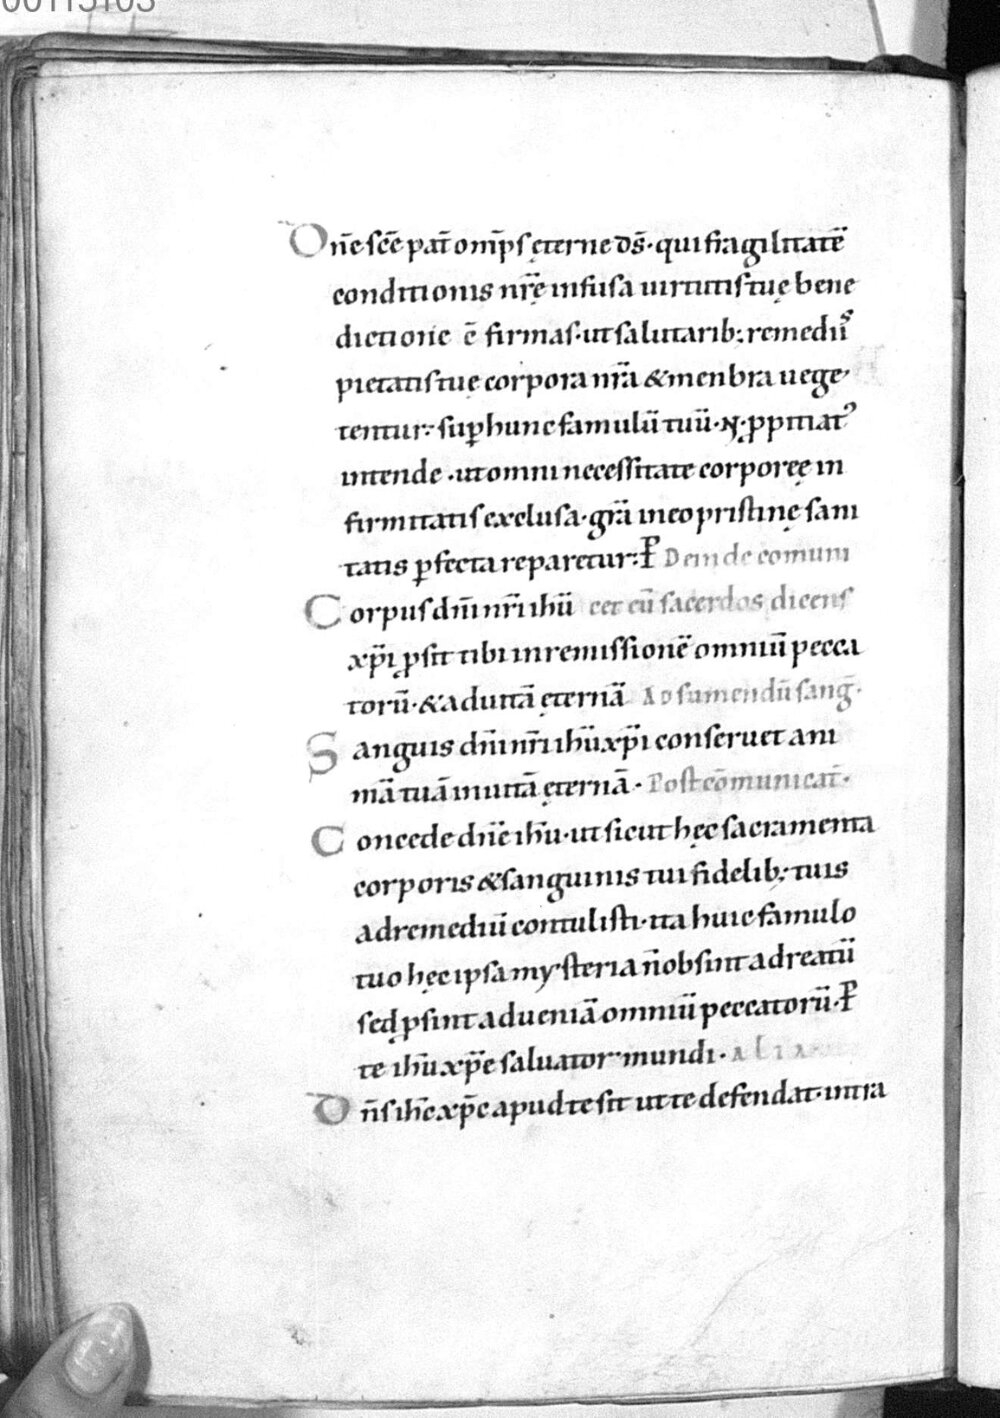 00113103
Dn̄e sc̄e pat̄ om̄ps ęterne ds̄· qui fragilitatē
conditionis nr̄ę infusa uirtutis tuę bene
dictione ē firmas· ut salutarib; remediis
pietatis tuę corpora nr̄a & menbra uege
tentur: sup̄ hunc famulū tuū· N· ꝓpitiat᾽
intende· ut omni necessitate corporeę in
firmitatis exclusa· gr̄a in eo pristinę sani
tatis ꝑfecta reparetur: P̄ Deinde comuni
Corpus dn̄i nr̄i ihū cet eū sacerdos dicens
xp̄i ꝓsit tibi in remissionē omniū pecca
torū· & ad uitā ęternā Ad sumendū sanḡ·
Sanguis dn̄i nr̄i ihū xp̄i conseruet ani
mā tuā in uitā ęternā· Post cōmunicat̄·
Concede dn̄e ih̄u· ut sicut hęc sacramenta
corporis & sanguinis tui fidelib; tuis
ad remediū contulisti· ita huic famulo
tuo hęc ipsa mysteria n̄ obsint ad reatū
sed ꝓsint ad ueniā omniū peccatorū· P̄
te ih̄u xp̄e saluator mundi· ALIA
Dn̄s ih̄c xp̄c apud te sit ut te defendat· intra